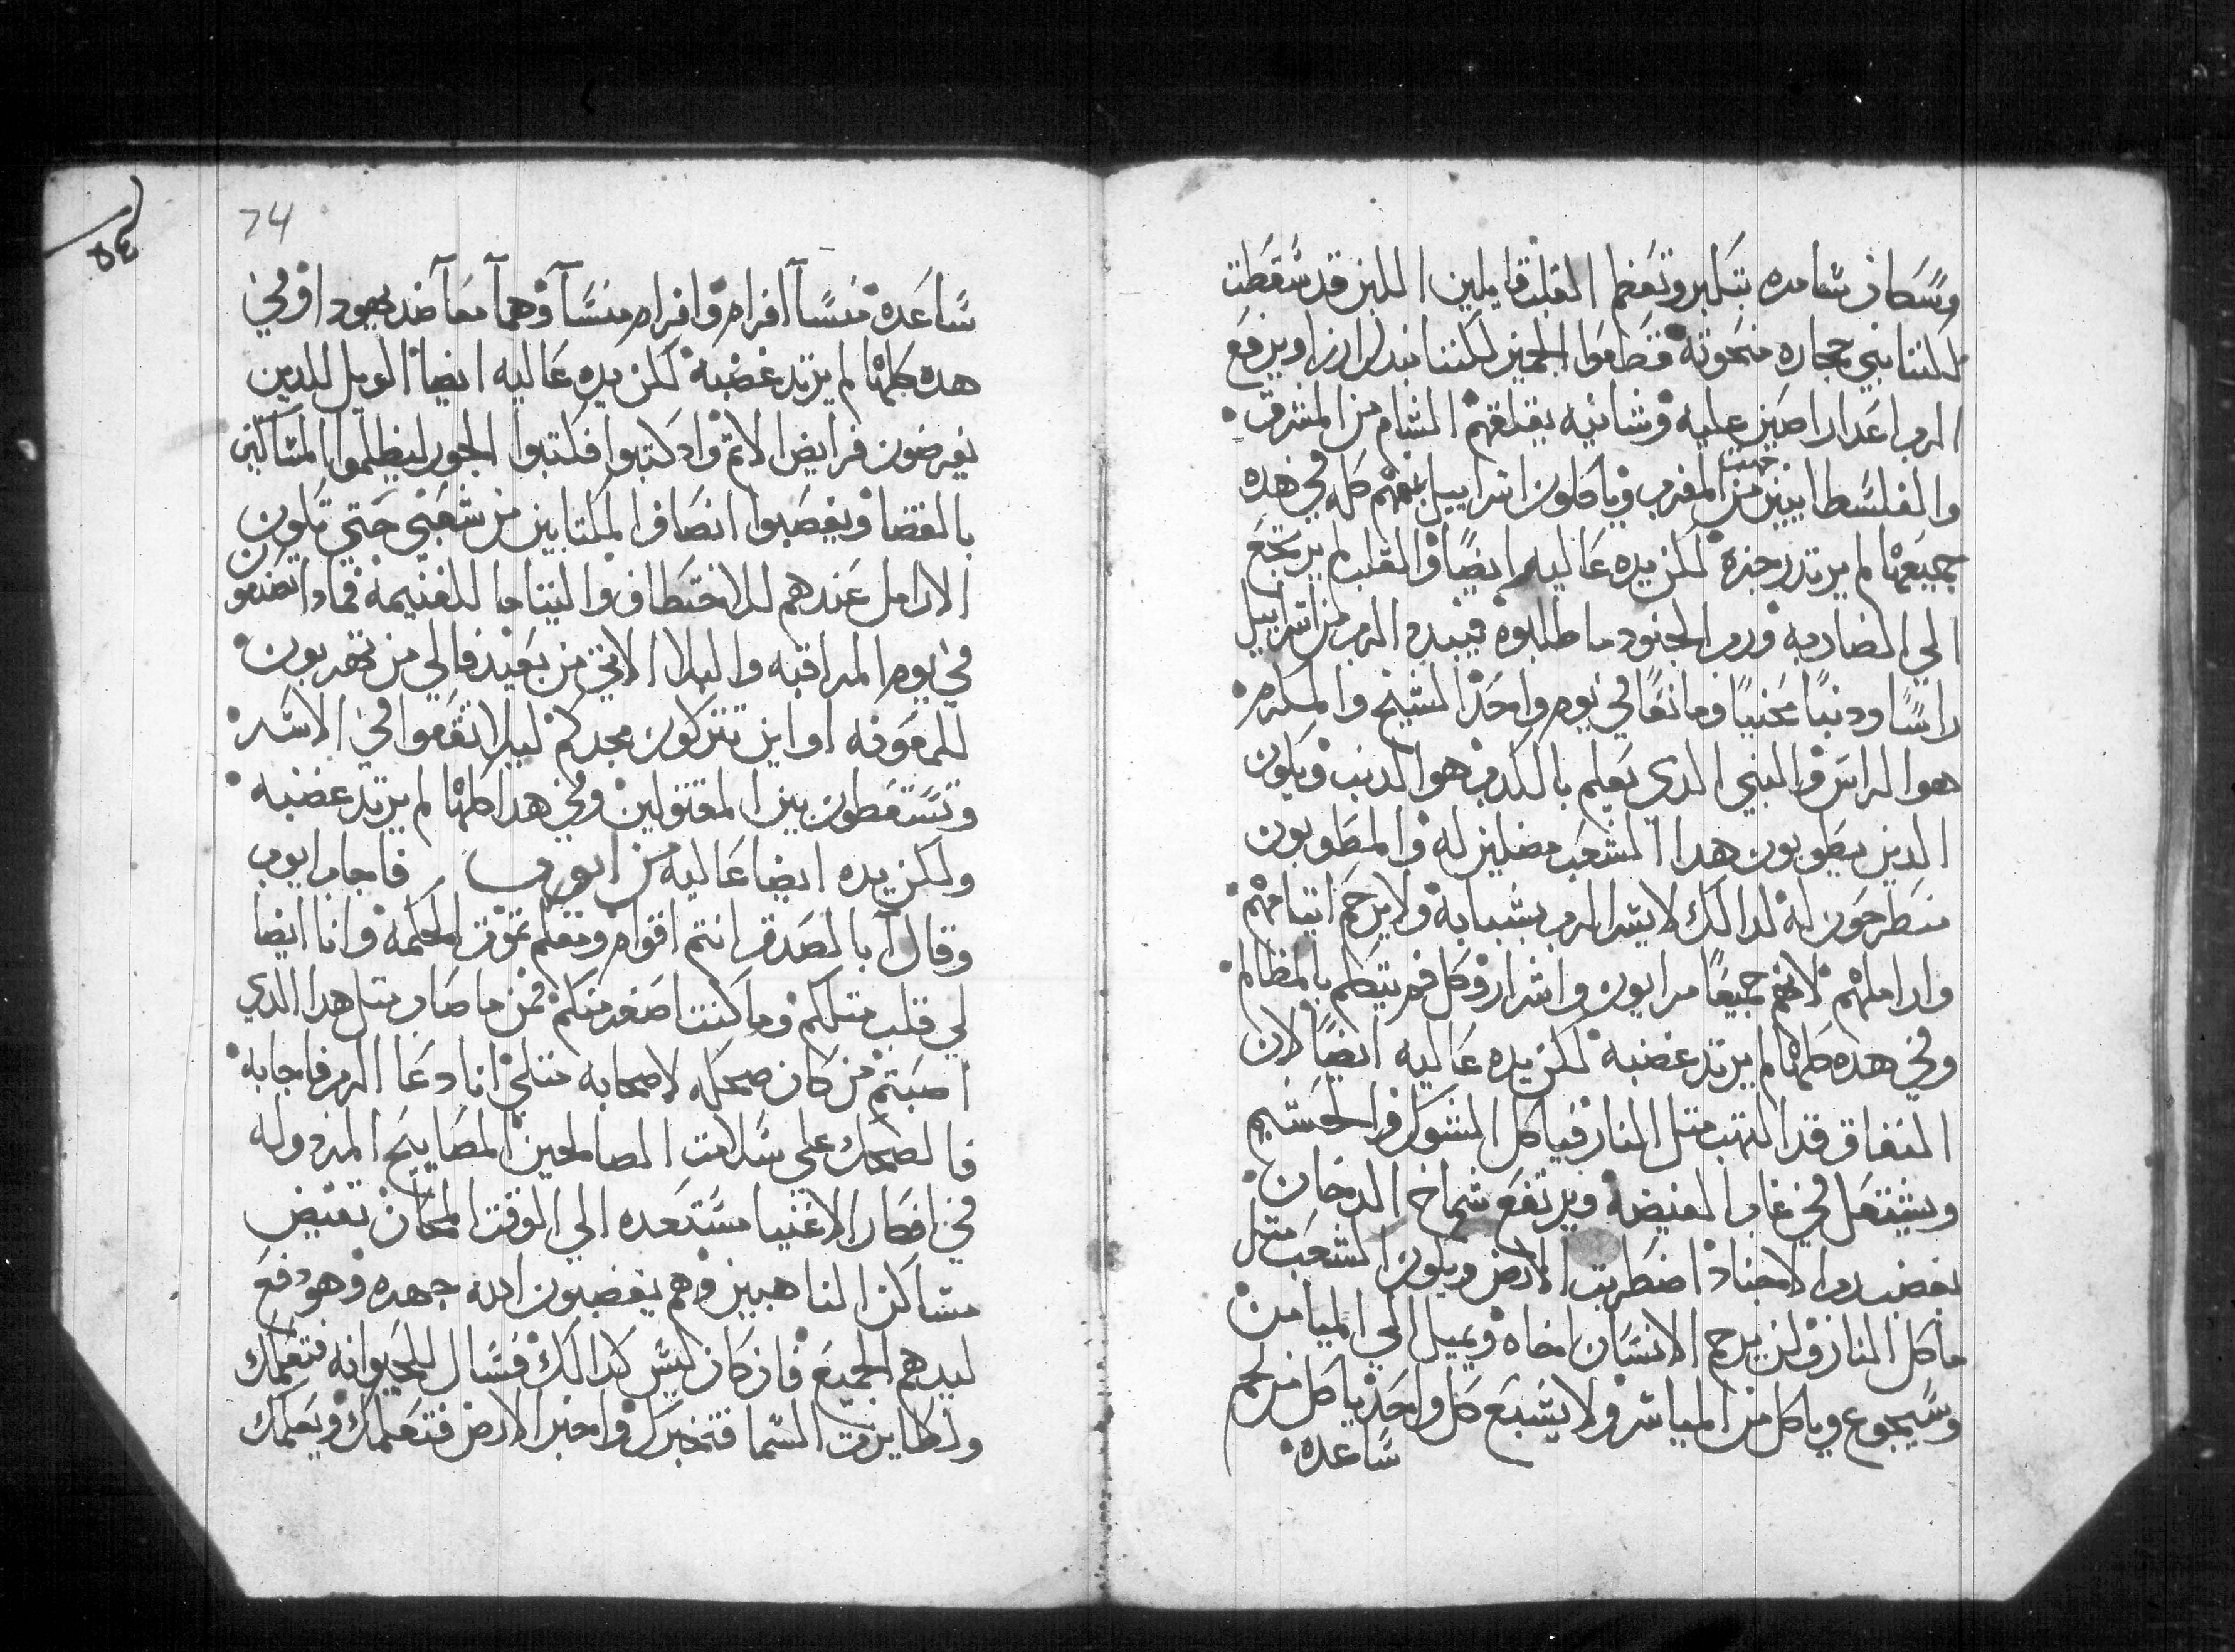 وسكان سامره بتكبر وتعظم القلب قايلين اللبن قد سقطت
لكننا نبني حجاره منحوته قطعوا الجميز لكننا نبدل ارزا ويرفع
الرب اعدا راصين عليه وشانيه يقلقهم الشام من المشرق
والفلسطانيين من المغرب وياكلون اسراييل بفمهم كله في هده
جميعها لم يرتد رجزه لكن يده عاليه ايضا والقلب لم يرجع
الي الضاربه ورب الجنود ما طلبوه فيبدد الرب من اسراييل
راسا ودنبا محنيا ومانعا في يوم واحد الشيخ والمكرم
هو الراس والنبي الدي يعلم بالكدب هو الدنب ويكون
الدين يطوبون هدا الشعب مضلين له والمطوبون
منطرحون له لدالك لا يسر الرب بشبابه ولا يرحم ايتامهم
واراملهم لانهم جميعا مرايون واشرار وكل فم يتكلم بالمظالم
وفي هده كلها لم يرتد غضبه لكن يده عاليه ايضا لان
النفاق قد التهب متل النار فياكل الشوك والحسيم
ويشتعل في غاب الغيضه ويرتفع شماخ الدخان
بغضب رب الاجناد اضطربت الارض ويكون الشعب متل
ماكل النار ولن يرحم الانسان اخاه ويميل الي الميامن
وسيجوع وياكل من المياسر ولا يشبع كل واحد ياكل من لحم
ساعده
74
ساعده منسا افرام وافرام منسا وهما معا ضد يهودا وفي
هده كلها لم يرتد غضبه لكن يده عاليه ايضا الويل للدين
يفرضون فرايض الاثم واد كتبوا فكتبوا الجور ليظلموا المساكين
بالقضا ويغصبوا انصاف المكتابين من شعبي حتي تكون
الارامل عندهم للاختطاف واليتاما للغنيمه فمادا تصنعون
في يوم المراقبه والبلا الاتي من بعيد فالي من تهربون
للمعونه او اين تتركون مجدكم ليلا تقعوا في الاسر
وتستقطون بين المقتولين وفي هدا كلها لم يرتد غضبه
ولكن يده ايضا عاليه من ايوب فاجاب ايوب
وقال ابالصدق انتم اقوام ومعكم تموت الحكمه وانا ايضا
لي قلب متلكم وما كنت اصغر منكم فمن ما صار متل هدا الدي
اصبتم من كان ضحكه لاصحابه متلي انا دعا الرب فاجابه
فالضحك علي سلامت الصالحين المصابيح المردوله
في افكار الاغنيا مستعده الي الوقت المحان تفيض
مساكن الناهبين وهم يغضبون الله جهده وهو دفع
ليدهم الجميع فان كان ليس كدالك فسال للحيوانه فتعلمك
ولطايرت السما فتخبرك واخبر الارض فتعلمك ويعلمك